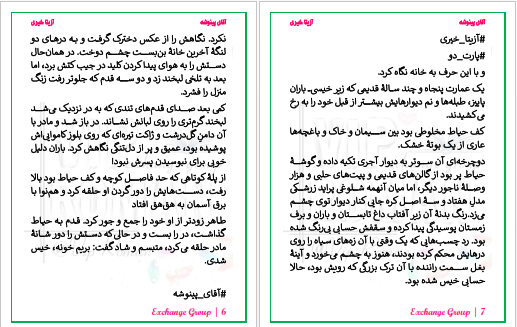 آقای پینوشه
آزیتا خیری
نکرد. نگاهش را از عکس دخترک گرفت و به درهای دو
لنگهٔ آخرین خانهٔ بن‌بست چشم دوخت. در همان‌حال
دستش را به هوای پیدا کردن کلید در جیب کتش برد، اما
بعد به تلخی لبخند زد و دو سه قدم که جلوتر رفت زنگ
منزل را فشرد.
کمی بعد صدای قدم‌های تندی که به در نزدیک می‌شد
لبخند گرم‌تری را روی لبانش نشاند. در باز شد و مادر با
آن دامن گل‌درشت و ژاکت تیره‌ای که روی بلوز کاموایی‌اش
پوشیده بود، عمیق و پر از دل‌تنگی نگاهش کرد. باران دلیل
خوبی برای نبوسیدن پسرش نبود!
از پلهٔ کوتاهی که حد فاصل کوچه و کف حیاط بود بالا
رفت، دست‌هایش را دور گردن او حلقه کرد و هم‌نوا با
برق آسمان به هق‌هق افتاد
طاهر زودتر از او خود را جمع و جور کرد. قدم به حیاط
گذاشت، در را بست و در حالی‌که دستش را دور شانهٔ
مادر حلقه می‌کرد، متبسم و شاد گفت: بریم خونه، خیس
شدی.
#آقای_پینوشه
Exchange Group | 6
آقای پینوشه
آزیتا خیری
#آزیتا_خیری
#پارت_دو
و با این حرف به خانه نگاه کرد.
یک عمارت پنجاه و چند سالهٔ قدیمی که زیر خیسی باران
پاییز، طبله‌ها و نم دیوارهایش بیشتر از قبل خود را به رخ
می‌کشیدند.
کف حیاط مخلوطی بود بین سیمان و خاک و باغچه‌ها
عاری از یک بوتهٔ خشک.
دوچرخه‌ای آن سوتر به دیوار آجری تکیه داده و گوشهٔ
حیاط پر بود از گالن‌های قدیمی و پیت‌های حلبی و هزار
وصلهٔ ناجور دیگر، اما میان آنهمه شلوغی پراید زرشکی
مدل هفتاد و سهٔ اصل کره جایی کنار دیوار توی چشم
می‌زد. رنگ بدنهٔ آن زیر آفتاب داغ تابستان و باران و برف
زمستان پوسیدگی پیدا کرده و سقفش حسابی بی‌رنگ شده
بود. رد چسب‌هایی که یک وقتی با آن زه‌های سیاه را روی
درهایش محکم کرده بودند، هنوز به چشم می‌خورد و آینهٔ
بغل سمت راننده با آن ترک بزرگی که رویش بود، حالا
حسابی خیس شده بود.
Exchange Group | 7